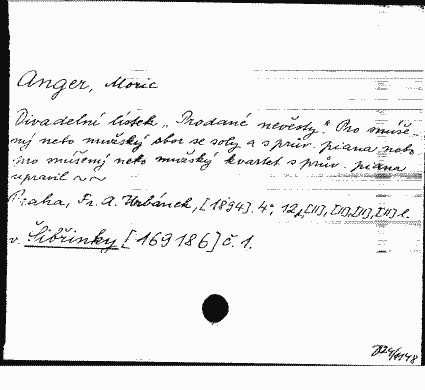 Anger, Moric
Divadelní lístek „Prodané nevěsty". Pro smíše-
ný nebo mužský sbor se soly a s prův. piana nebo
pro smíšený neb mužský kvartet s prův. piana
upravil ~ ~
Praha, Fr. A. Urbánek, [1894]. 4°, 12, [II], [II], [II], [II] l.
v. Šibřinky [169186] č. 1.